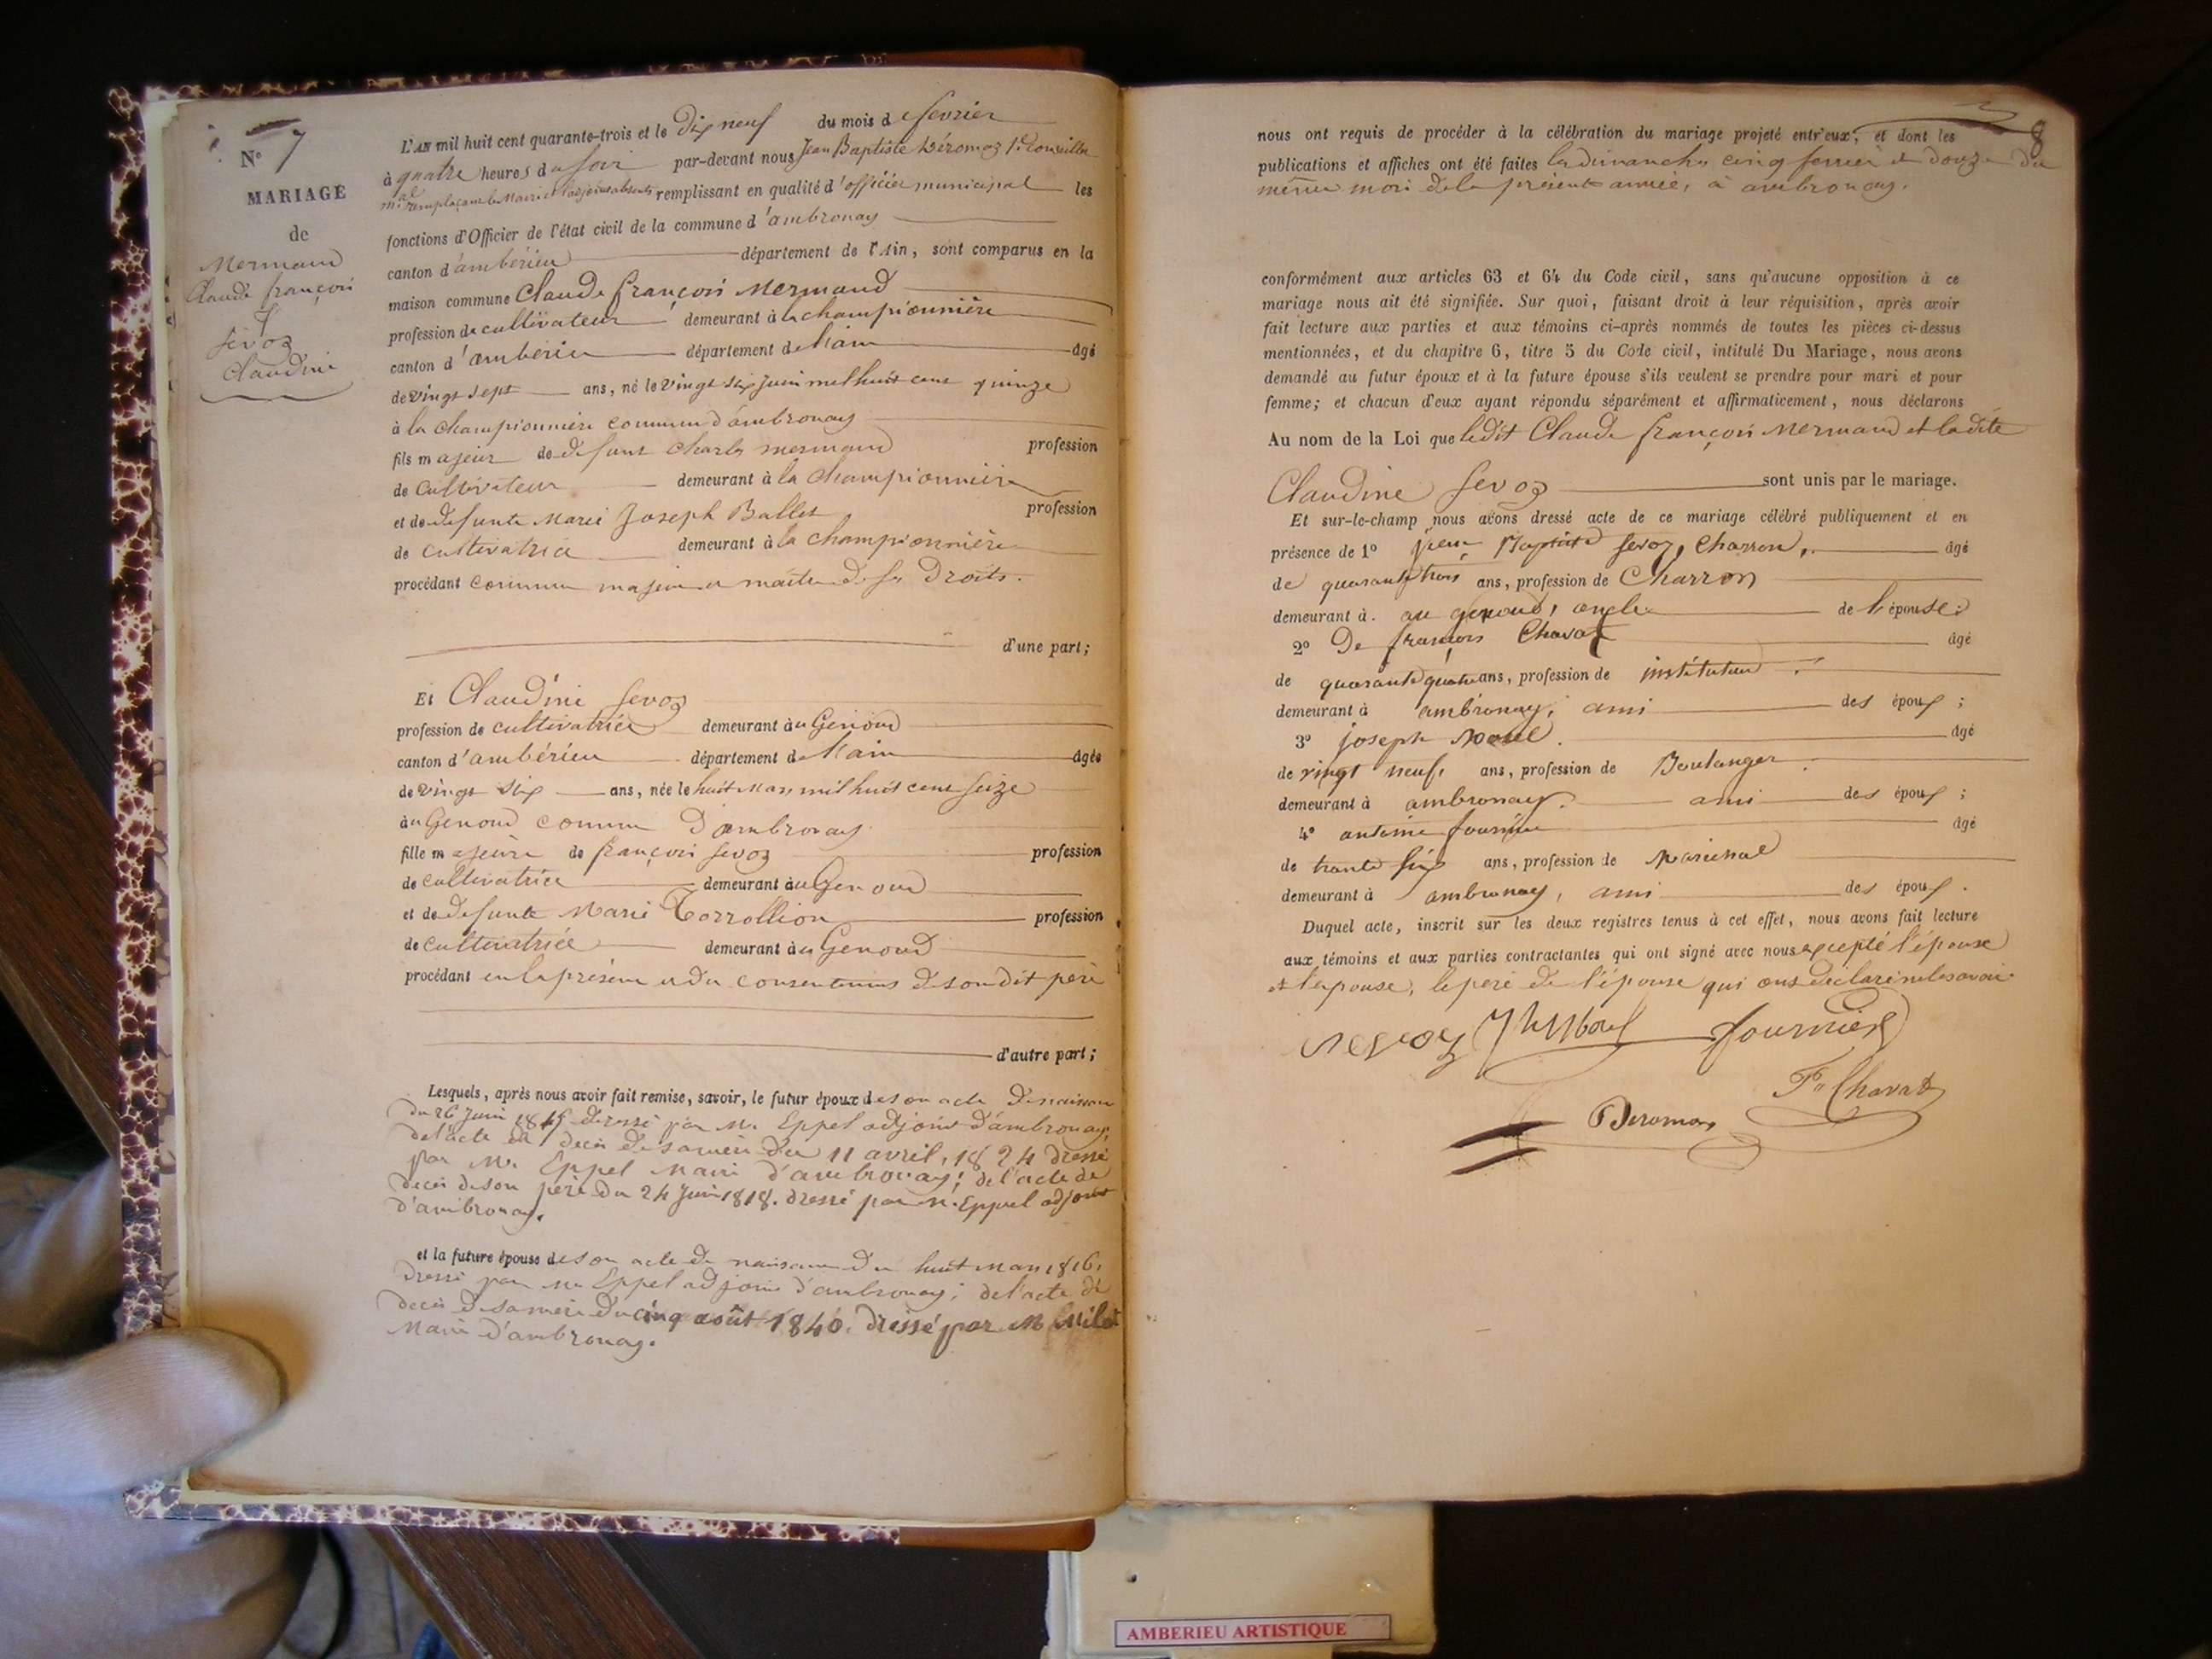 N° 7
MARIAGE
de
Mermand
Claude françois
&
Sevoz
Claudine
L'AN mil huit cent quarante-trois et le dix neuf du mois de fevrier
à quatre heures du soir par-devant nous Jean Baptiste Déromoz 1er Conseiller
mal remplaçant le Maire et l'adjoint absents remplissant en qualité d'officier municipal les
fonctions d'Officier de l'état civil de la commune d'ambronay
canton d'ambérieu département de l'Ain, sont comparus en la
maison commune Claude françois Mermand
profession de cultivateur demeurant à la championnière
canton d'ambérieu département de l'ain âgé
de vingt sept ans, né le vingt six juin mil huit cent quinze
à la championnière commune d'ambronay
fils majeur de défunt Charles mermand profession
de Cultivateur demeurant à la championnière
et de defunte Marie Joseph Ballet profession
de cultivatrice demeurant à la championnière
procédant comme majeur et maitre de ses Droits.
d'une part;
Et Claudine Sevoz
profession de cultivatrice demeurant au Genoud
canton d'ambérieu département de l'ain âgée
de vingt six ans, née le huit Mars mil huit cent seize
au Genoud commune d'ambronay
fille majeure de françois Sevoz profession
de cultivatrice demeurant au Genoud
et de defunte Marie Torrollion profession
de cultivatrice demeurant au Genoud
procédant en la présence et du consentement de son dit père
d'autre part;
Lesquels, après nous avoir fait remise, savoir, le futur époux de son acte de naissance
du 26 Juin 1815 dressé par Mr Eppel adjoint d'ambronay,
de l'acte de décès de sa mère du 11 avril 1824 dressé
par Mr Eppel Maire d'ambronay; de l'acte de
décès de son père du 24 Juin 1818. dressé par Mr Eppel adjoint
d'ambronay.
et la future épouse de son acte de naissance du huit Mars 1816.
dressé par Mr Eppel adjoint d'ambronay; de l'acte de
décès de sa mère du cinq août 1840. dressé par M
Maire d'ambronay.
8
nous ont requis de procéder à la célébration du mariage projeté entr'eux, et dont les
publications et affiches ont été faites les dimanches cinq fevrier et douze du
même mois de la présente année, à ambronay.
conformément aux articles 63 et 64 du Code civil, sans qu'aucune opposition à ce
mariage nous ait été signifiée. Sur quoi, faisant droit à leur réquisition, après avoir
fait lecture aux parties et aux témoins ci-après nommés de toutes les pièces ci-dessus
mentionnées, et du chapitre 6, titre 5 du Code civil, intitulé Du Mariage, nous avons
demandé au futur époux et à la future épouse s'ils veulent se prendre pour mari et pour
femme; et chacun d'eux ayant répondu séparément et affirmativement, nous déclarons
Au nom de la Loi que ledit Claude françois Mermand et ladite
Claudine Sevoz sont unis par le mariage.
Et sur-le-champ nous avons dressé acte de ce mariage célébré publiquement et en
présence de 1° jean Baptiste Sevoz, Charron, âgé
de quarante trois ans, profession de Charron
demeurant à. au genoud, oncle de l'épouse;
2° De françois Chavat âgé
de quarante quatre ans, profession de instituteur
demeurant à ambronay, ami des époux;
3° joseph âgé
de vingt neuf, ans, profession de Boulanger
demeurant à ambronay. ami des époux;
4° antoine fournier âgé
de trante six ans, profession de Maréchal
demeurant à ambronay, ami des époux.
Duquel acte, inscrit sur les deux registres tenus à cet effet, nous avons fait lecture
aux témoins et aux parties contractantes qui ont signé avec nous excepté l'épouse
et l'epouse, le père de l'épouse qui ont déclaré ne le savoir
sevoz fournier
Fs Chavat
Deromoz
AMBERIEU ARTISTIQUE